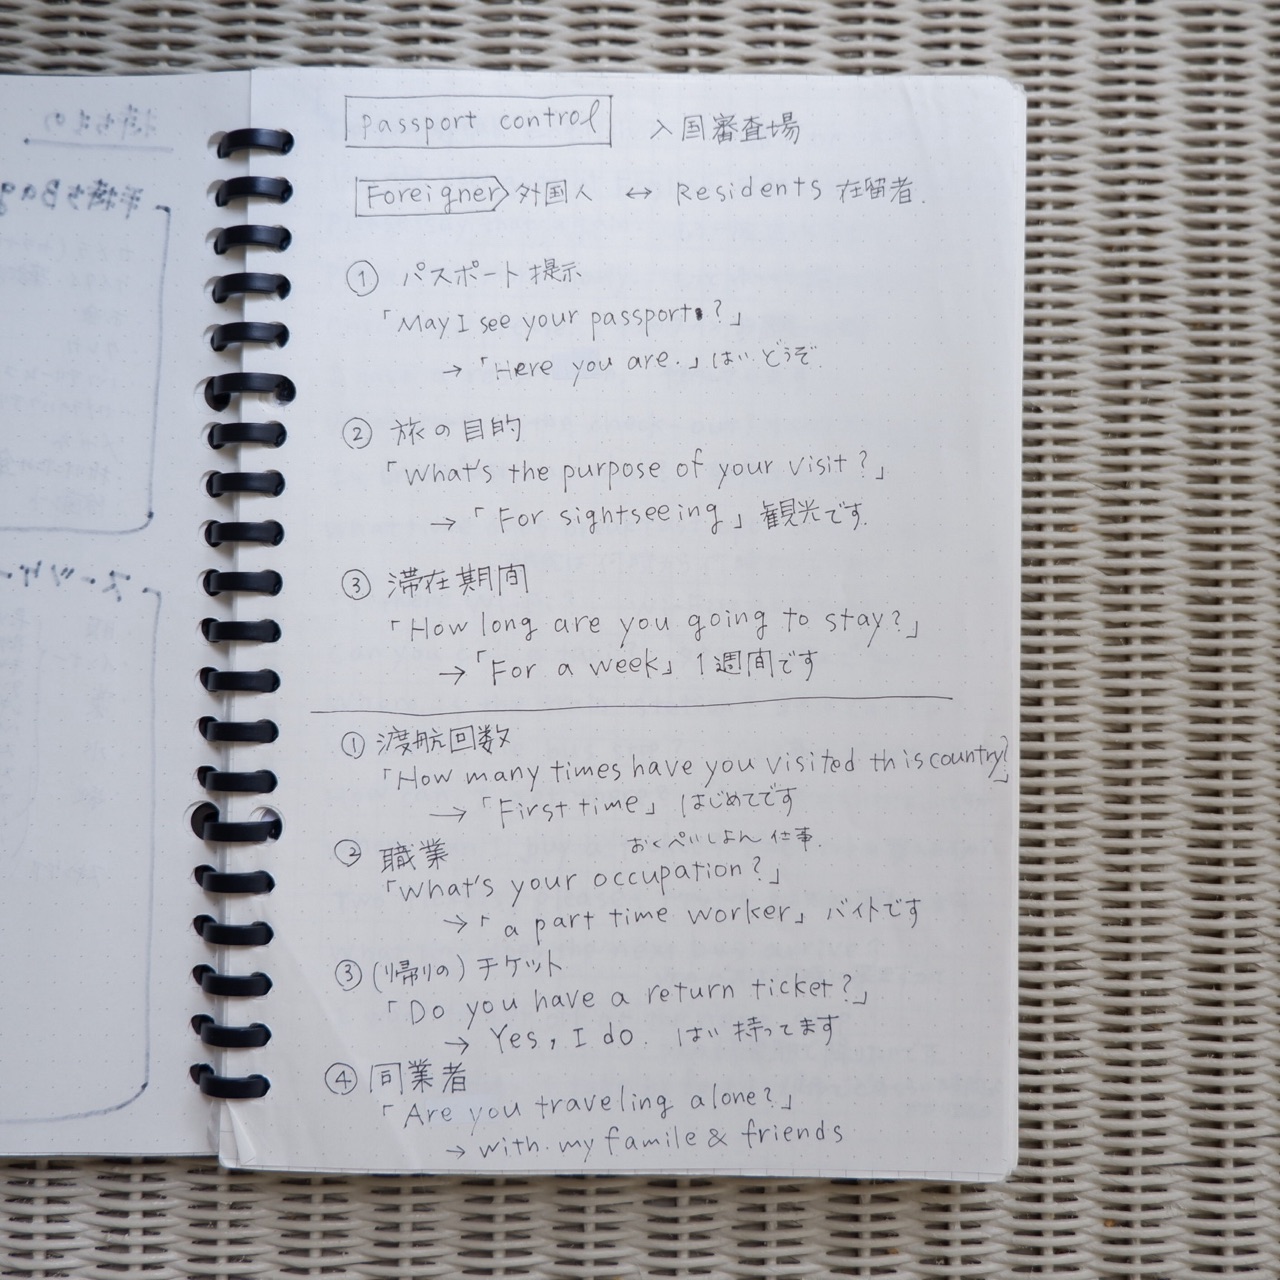 Passport control 入国審査場
Foreigner 外国人 ↔ Residents 在留者.
① パスポート提示
「May I see your passport?」
→「Here you are.」はい、どうぞ.
② 旅の目的
「What's the purpose of your visit?」
→「For sightseeing」観光です.
③ 滞在期間
「How long are you going to stay?」
→「For a week」1週間です
① 渡航回数
「How many times have you visited this country?」
→「First time」はじめてです
② 職業 おくぺいしょん 仕事.
「What's your occupation?」
→「a part time worker」バイトです
③ (帰りの)チケット
「Do you have a return ticket?」
→ Yes, I do. はい 持ってます
④ 同業者
「Are you traveling alone?」
→ with my famile & friends
手持ちBag